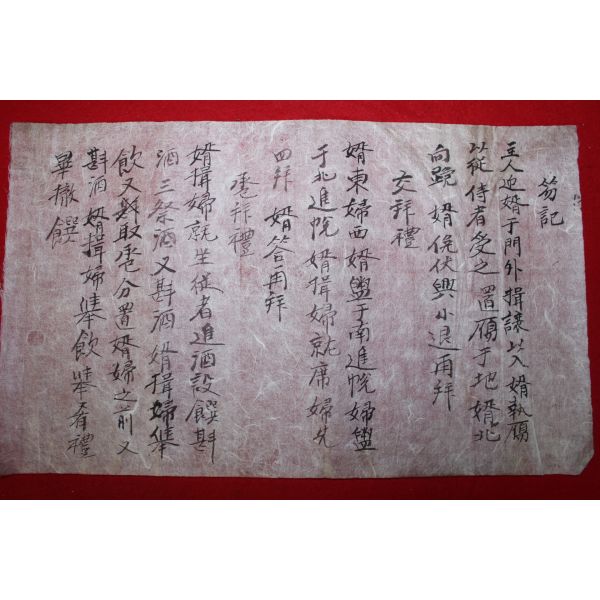 笏記
主人迎婿于門外揖讓以入婿執鴈
以從侍者受之 置鴈于地婿北
向跪 婿俛伏興小退再拜
交拜禮
婿東婦西婿盥于南進帨婦盥
于北進帨 婿揖婦就席婦先
四拜 婿答再拜
卺拜禮
婿揖婦就坐從者進酒設饌斟
酒三祭酒又斟酒婿揖婦舉
飲又斟取卺分置婿婦之前又
斟酒婿揖婦舉飲 舉肴禮
畢撤饌